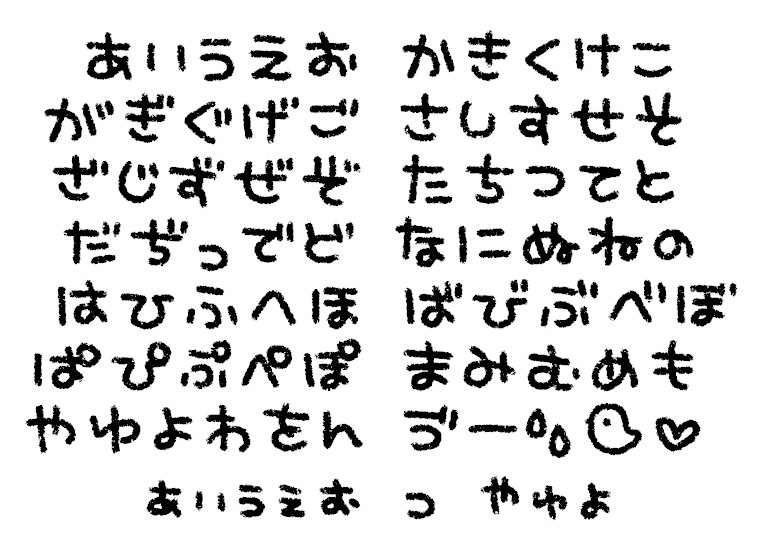 あいうえお かきくけこ
がぎぐげご さしすせそ
ざじずぜぞ たちつてと
だぢっでど なにぬねの
はひふへほ ばびぶべぼ
ぱぴぷぺぽ まみむめも
やゆよわをん ゔー
ぁぃぅぇぉ っ ゃゅょ